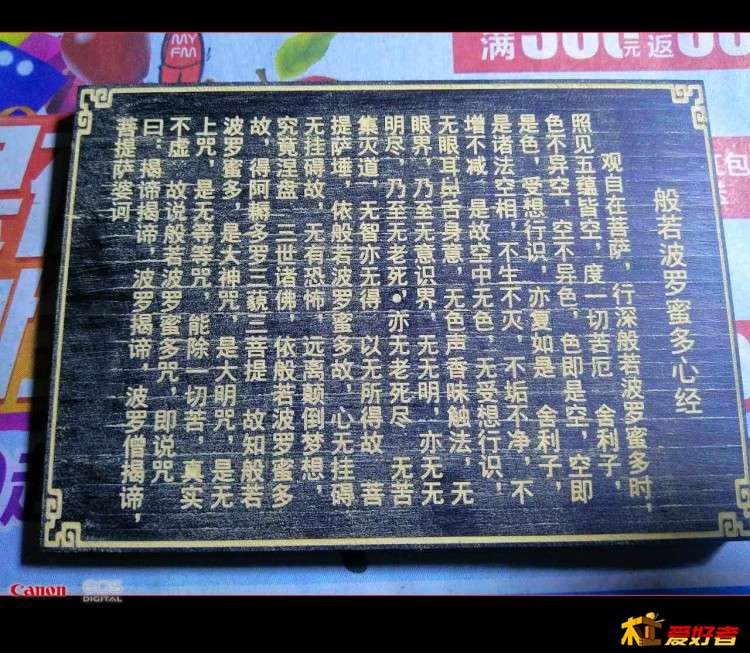 MY
FM
满500元返
包
般若波罗蜜多心经
观自在菩萨，行深般若波罗蜜多时，
照见五蕴皆空，度一切苦厄 舍利子，
色不异空，空不异色，色即是空，空即
是色，受想行识，亦复如是 舍利子，
是诸法空相，不生不灭，不垢不净，不
增不减，是故空中无色，无受想行识，
无眼耳鼻舌身意，无色声香味触法，无
眼界，乃至无意识界，无无明，亦无无
明尽，乃至无老死，亦无老死尽 无苦
集灭道，无智亦无得 以无所得故 菩
提萨埵，依般若波罗蜜多故，心无挂碍
无挂碍故，无有恐怖 远离颠倒梦想，
究竟涅盘 三世诸佛，依般若波罗蜜多
故，得阿耨多罗三藐三菩提 故知般若
波罗蜜多，是大神咒，是大明咒，是无
上咒，是无等等咒，能除一切苦，真实
不虚 故说般若波罗蜜多咒，即说咒
曰：揭谛揭谛，波罗揭谛，波罗僧揭谛，
菩提萨婆诃
Canon
EOS
DIGITAL
爱好者